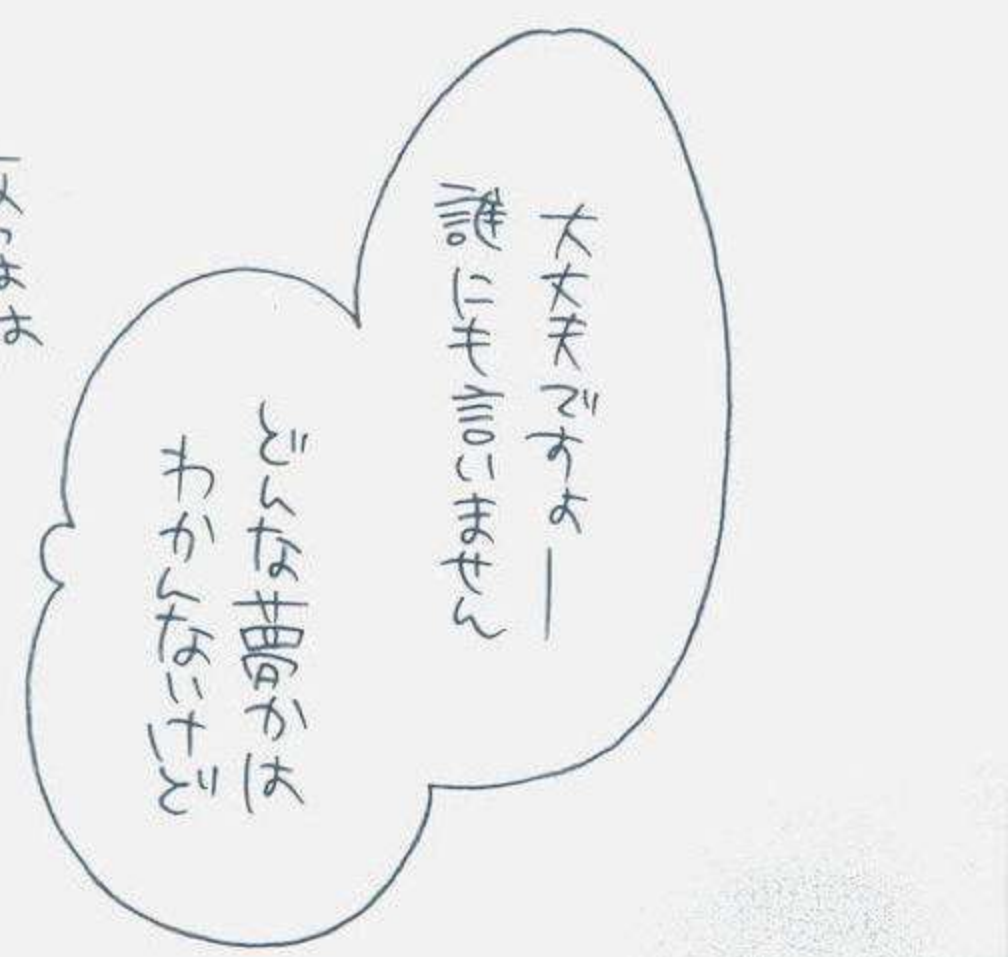 大丈夫ですよー
誰にも言いません
どんな夢かは
わかんないけど